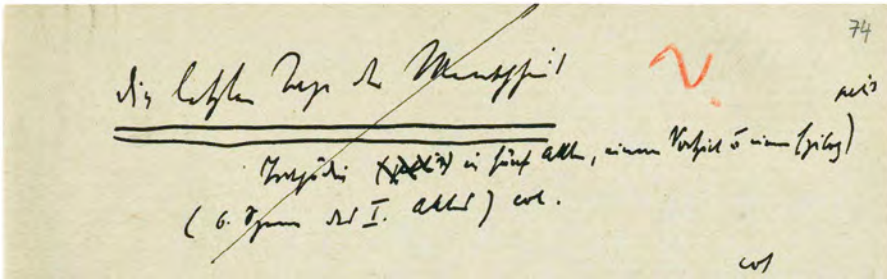 74
Die letzten Tage der Menschheit
Tragödie in fünf Akten, einem Vorspiel u einem Epilog)
(6. Szene des I. Aktes)